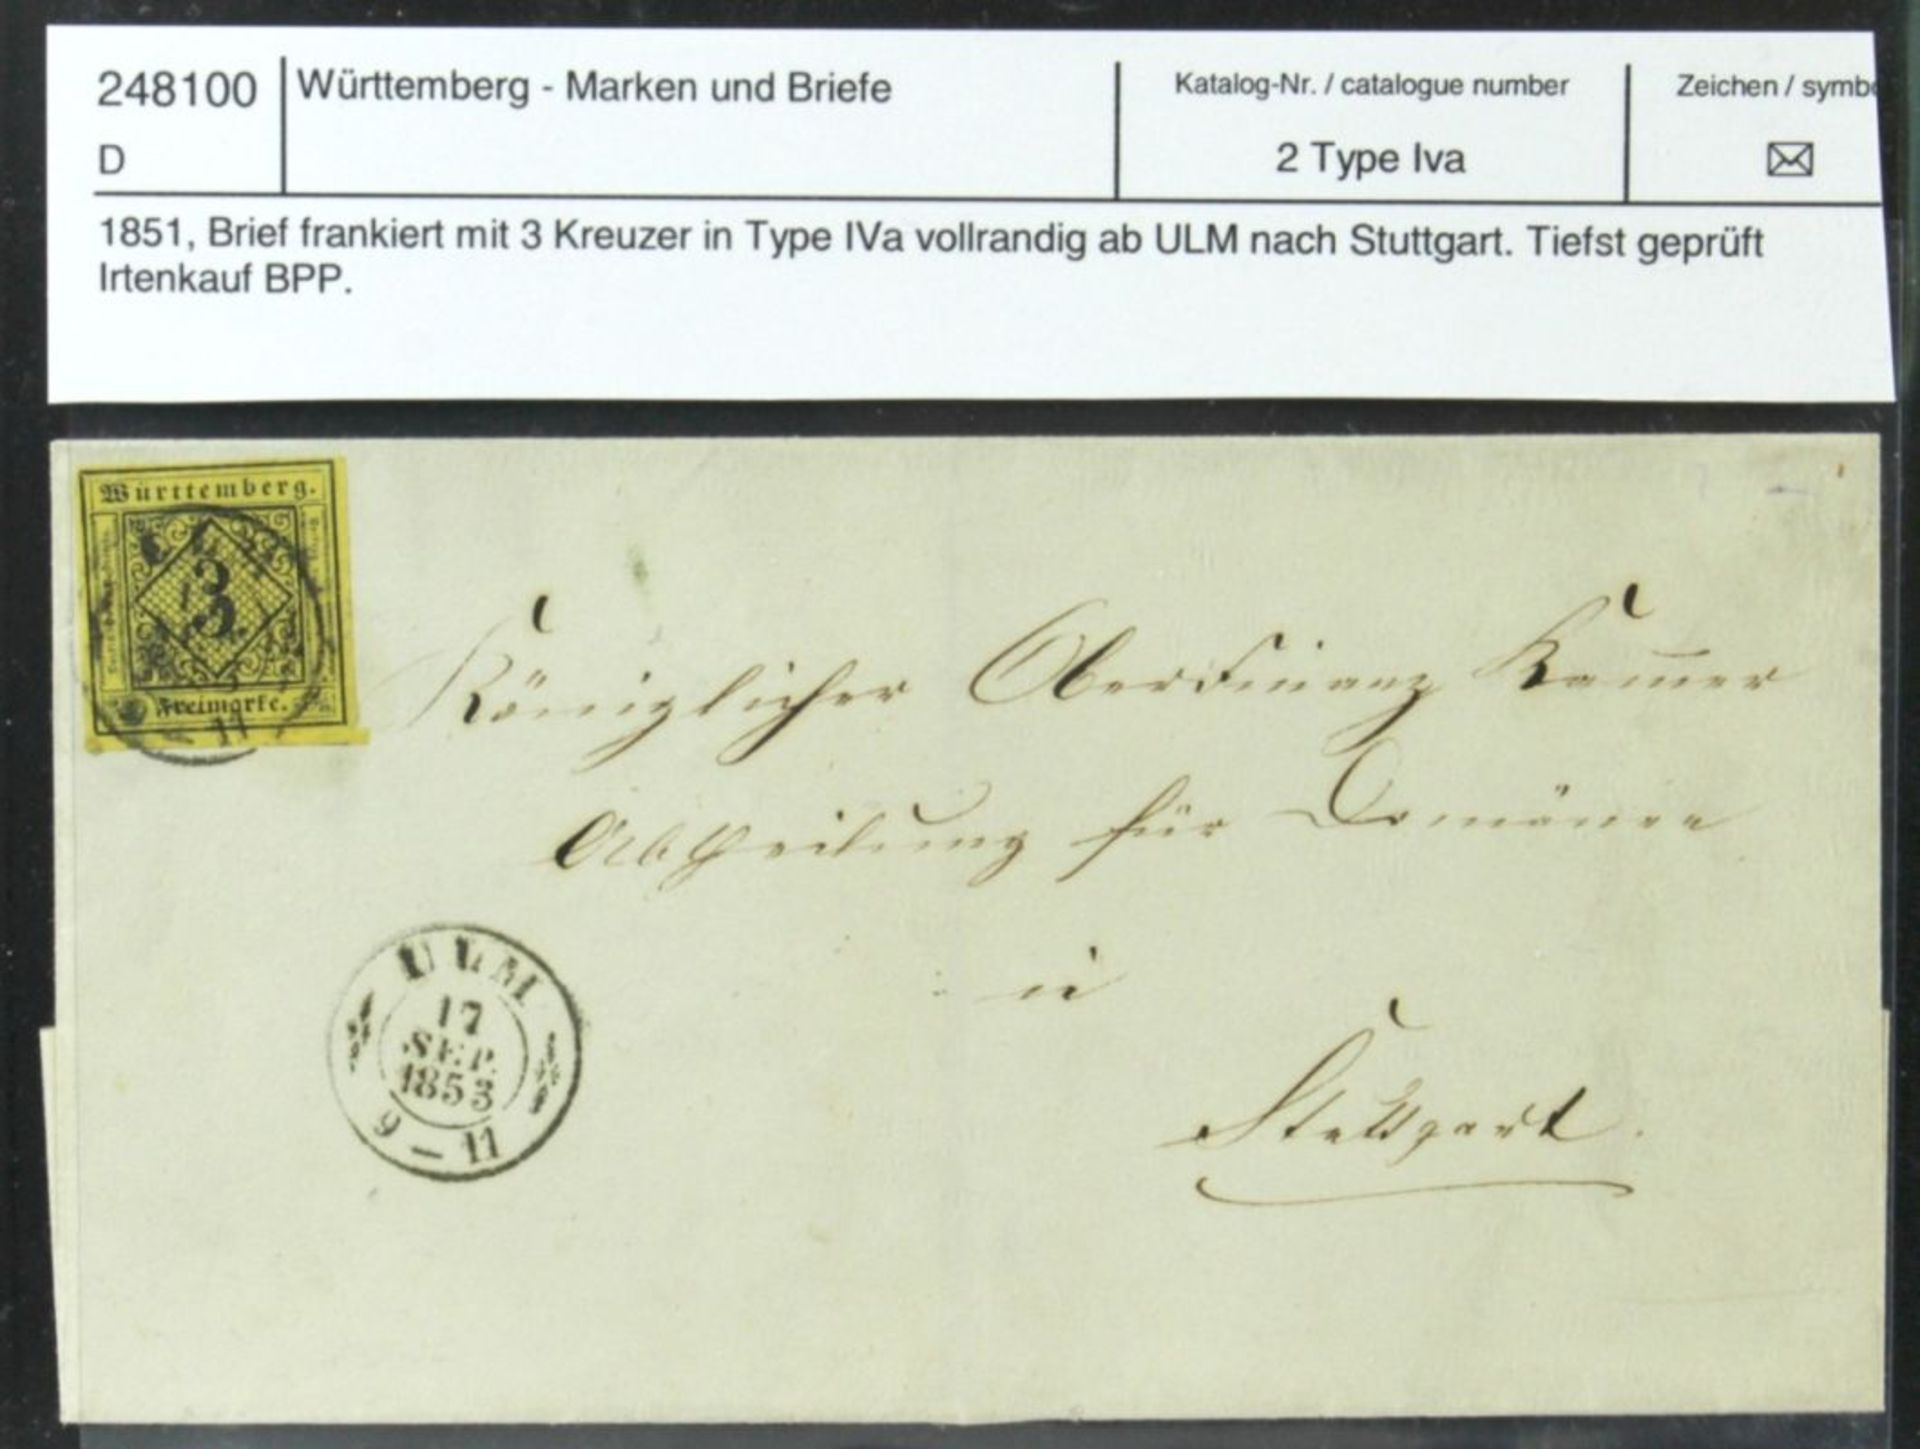 248100
Württemberg - Marken und Briefe
Katalog-Nr. / catalogue number
Zeichen / symb
D
2 Type Iva
1851, Brief frankiert mit 3 Kreuzer in Type IVa vollrandig ab ULM nach Stuttgart. Tiefst geprüft
Irtenkauf BPP.
Württemberg.
3
Freimarke.
11
Königlicher OberFinanz Kam̅er
Abtheilung für Domänen
in
Stuttgart.
ULM
17
SEP.
1853
9 - 11